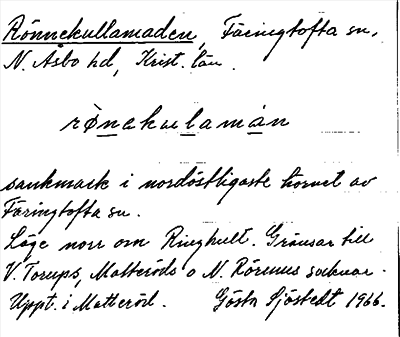 Rönnekullamaden, Färingtofta sn,
N. Åsbo hd, Krist. län.
rønekulamán
sankmark i nordöstligaste hörnet av
Färingtofta sn.
Läge norr om Ringhult. Gränsar till
V. Torups, Matteröds o N. Rörums socknar.
Uppt. i Matteröd. Gösta Sjöstedt 1966.